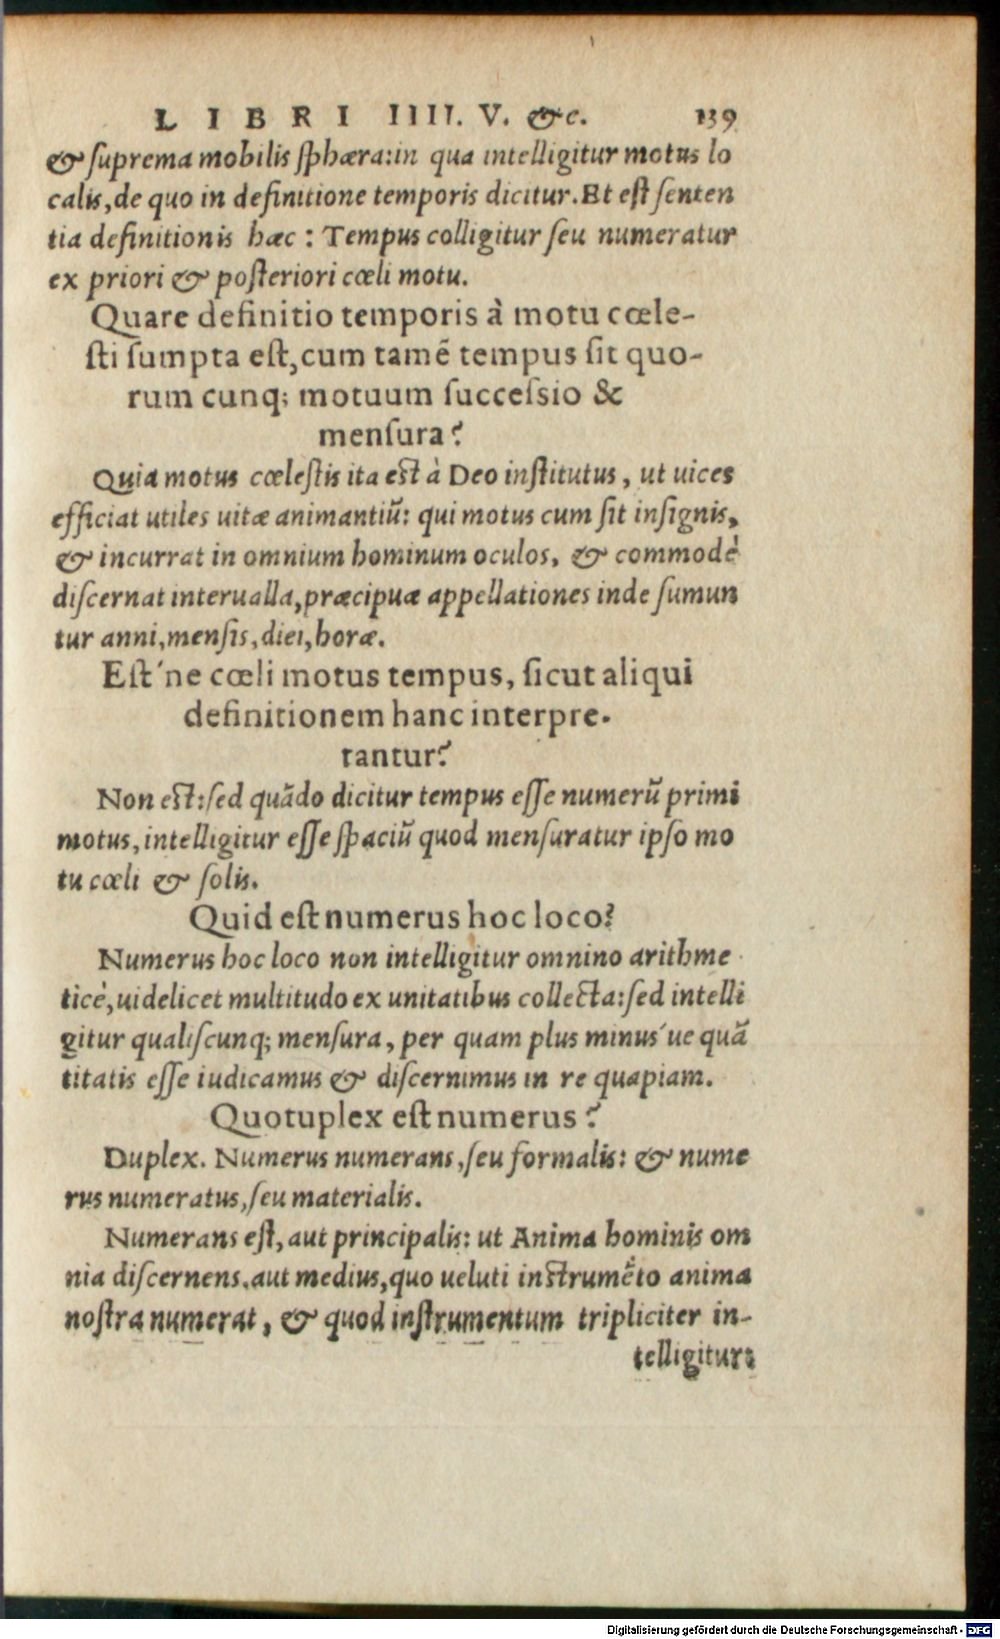 LIBRI IIII. V. &c. 139
& ſuprema mobilis ſphæra: in qua intelligitur motus lo
calis, de quo in definitione temporis dicitur. Et eſt ſenten
tia definitionis hæc : Tempus colligitur ſeu numeratur
ex priori & poſteriori cœli motu.
Quare definitio temporis à motu cœle-
ſti ſumpta eſt, cum tamẽ tempus ſit quo-
rum cunq; motuum ſucceſsio &
menſura?
Quia motus cœleſtis ita eſt à Deo inſtitutus, ut uices
efficiat utiles uitæ animantiũ: qui motus cum ſit inſignis,
& incurrat in omnium hominum oculos, & commodè
diſcernat interualla, præcipuæ appellationes inde ſumun
tur anni, menſis, diei, horæ.
Eſt'ne cœli motus tempus, ſicut aliqui
definitionem hanc interpre-
tantur?
Non eſt: ſed quãdo dicitur tempus eſſe numerũ primi
motus, intelligitur eſſe ſpaciũ quod menſuratur ipſo mo
tu cœli & ſolis.
Quid eſt numerus hoc loco?
Numerus hoc loco non intelligitur omnino arithme
ticè, uidelicet multitudo ex unitatibus collecta: ſed intelli
gitur qualiſcunq; menſura, per quam plus minus'ue quã
titatis eſſe iudicamus & diſcernimus in re quapiam.
Quotuplex eſt numerus?
Duplex. Numerus numerans, ſeu formalis: & nume
rus numeratus, ſeu materialis.
Numerans eſt, aut principalis: ut Anima hominis om
nia diſcernens. aut medius, quo ueluti inſtrumẽto anima
noſtra numerat, & quod inſtrumentum tripliciter in-
telligitur:
Digitalisierung gefördert durch die Deutsche Forschungsgemeinschaft - DFG